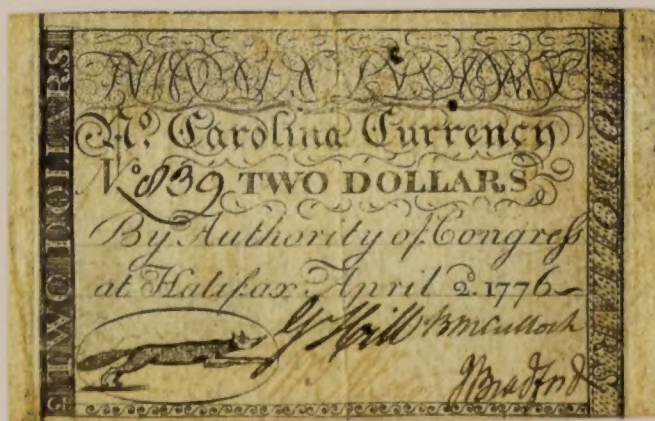 TWO DOLLARS
No. Carolina Currency
No. 839 TWO DOLLARS
By Authority of Congress
at Halifax April 2. 1776
W Hill B McCulloch
J Bradford